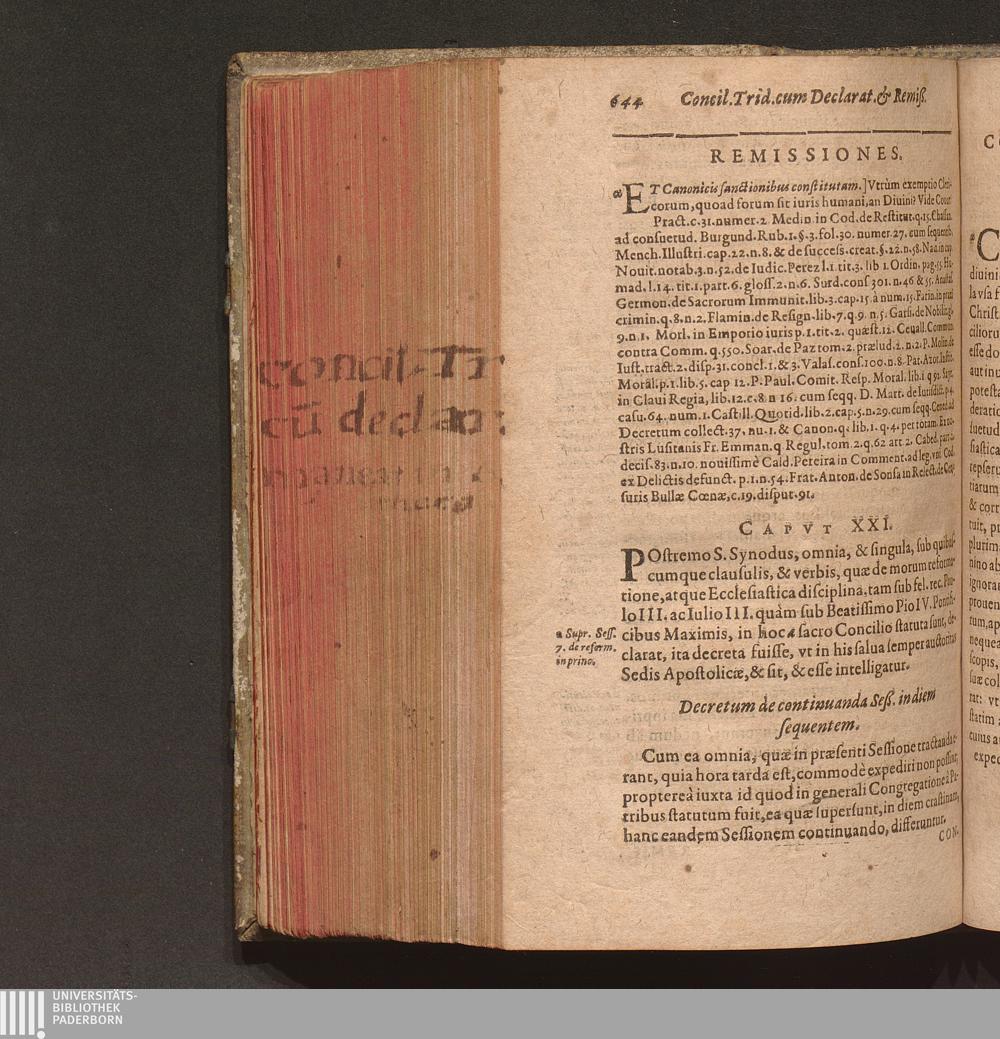 644 Concil.Trid.cum Declarat.& Remiß.
REMISSIONES.
ET Canonicis sanctionibus constitutam.] Vtrùm exemptio Cleri-
corum, quoad forum sit iuris humani, an Diuini? Vide Couar
Pract.c.31.numer.2 Medin in Cod.de Restitut.q.15.Chassin.
ad consuetud. Burgund.Rub.1.§.3.fol.30. numer.27. cum sequentib.
Mench.Illustri.cap.22.n.8.& de success.creat.§.22.n.58.
Nouit.notab.3.n.52.de Iudic.Perez l.1 tit.3. lib 1.Ordin.
mad.l.14. tit.1.part.6.gloss.2.n.6. Surd.cons 301.n.46 & 55.
Germon.de Sacrorum Immunit.lib.3.cap.15.à num.15.Farin.in
crimin.q.8.n.2.Flamin.de Resign.lib.7.q.9.n.5. Garsi.de Nobilit.gl.
9.n 1. Morl. in Emporio iuris p.1.tit.2. quæst.12. Ceuall.Commun
contra Comm. q.550.Soar.de Paz tom.2.prælud.2.n.2.P.Molin.de
Iust.tract.2.disp.31.concl.1.& 3.Valas.cons.100.n.8.Pat.Azor.
Moral.p.1.lib.5.cap 12.P.Paul.Comit. Resp. Moral.lib.1
in Claui Regia, lib.12.c.8 n 16. cum seqq. D. Mart. de Iurisdict.p.4.
casu.64.num.1.Castill.Quotid.lib.2.cap.5.n.29.cum seqq.
Decretum collect.37.nu.1.& Canon.q. lib.1.q.4.per totam.
stris Lusitanis Fr. Emman.q Regul.tom.2.q.62 art 2. Cabed.
decis.83.n.10. nouissimè Cald.Pereira in Comment.ad leg.vni.Cod.
ex Delictis defunct. p.1.n.54.Frat.Anton.de Sousa in Relect.de
suris Bullæ Cœnæ,c.19.disput.91.
CAPVT XXI.
POstremo S. Synodus, omnia, & singula, sub quibus-
cumque clausulis, & verbis, quæ de morum reforma-
tione, atque Ecclesiastica disciplina, tam sub fel. rec. Pau-
lo III. ac Iulio III. quàm sub Beatissimo Pio IV. Pontifi-
cibus Maximis, in hoc a sacro Concilio statuta sunt, de-
clarat, ita decreta fuisse, vt in his salua semper auctoritas
Sedis Apostolicæ, & sit, & esse intelligatur.
a Supr. Sess.
7. de reform.
in princ.
Decretum de continuanda Seß. in diem
sequentem.
Cum ea omnia, quæ in præsenti Sessione tractanda e-
rant, quia hora tarda est, commodè expediri non possint,
proptereà iuxta id quod in generali Congregatione à Pa-
tribus statutum fuit, ea quæ supersunt, in diem crastinam,
hanc eandem Sessionem continuando, differuntur.
CON-
concil. Tr
cū declar:
C
diuini
la vsa f
Christ
cilioru
esse do
aut inu
potesta
deratio
suetud
siastica
repseru
tiarum
& corr
tuit, pr
plurim
nino ab
ignoran
prouen
tum, ap
nequea
scopis,
suæ col
rat: vt
statim a
cuius a
exped
UNIVERSITÄTS-
BIBLIOTHEK
PADERBORN